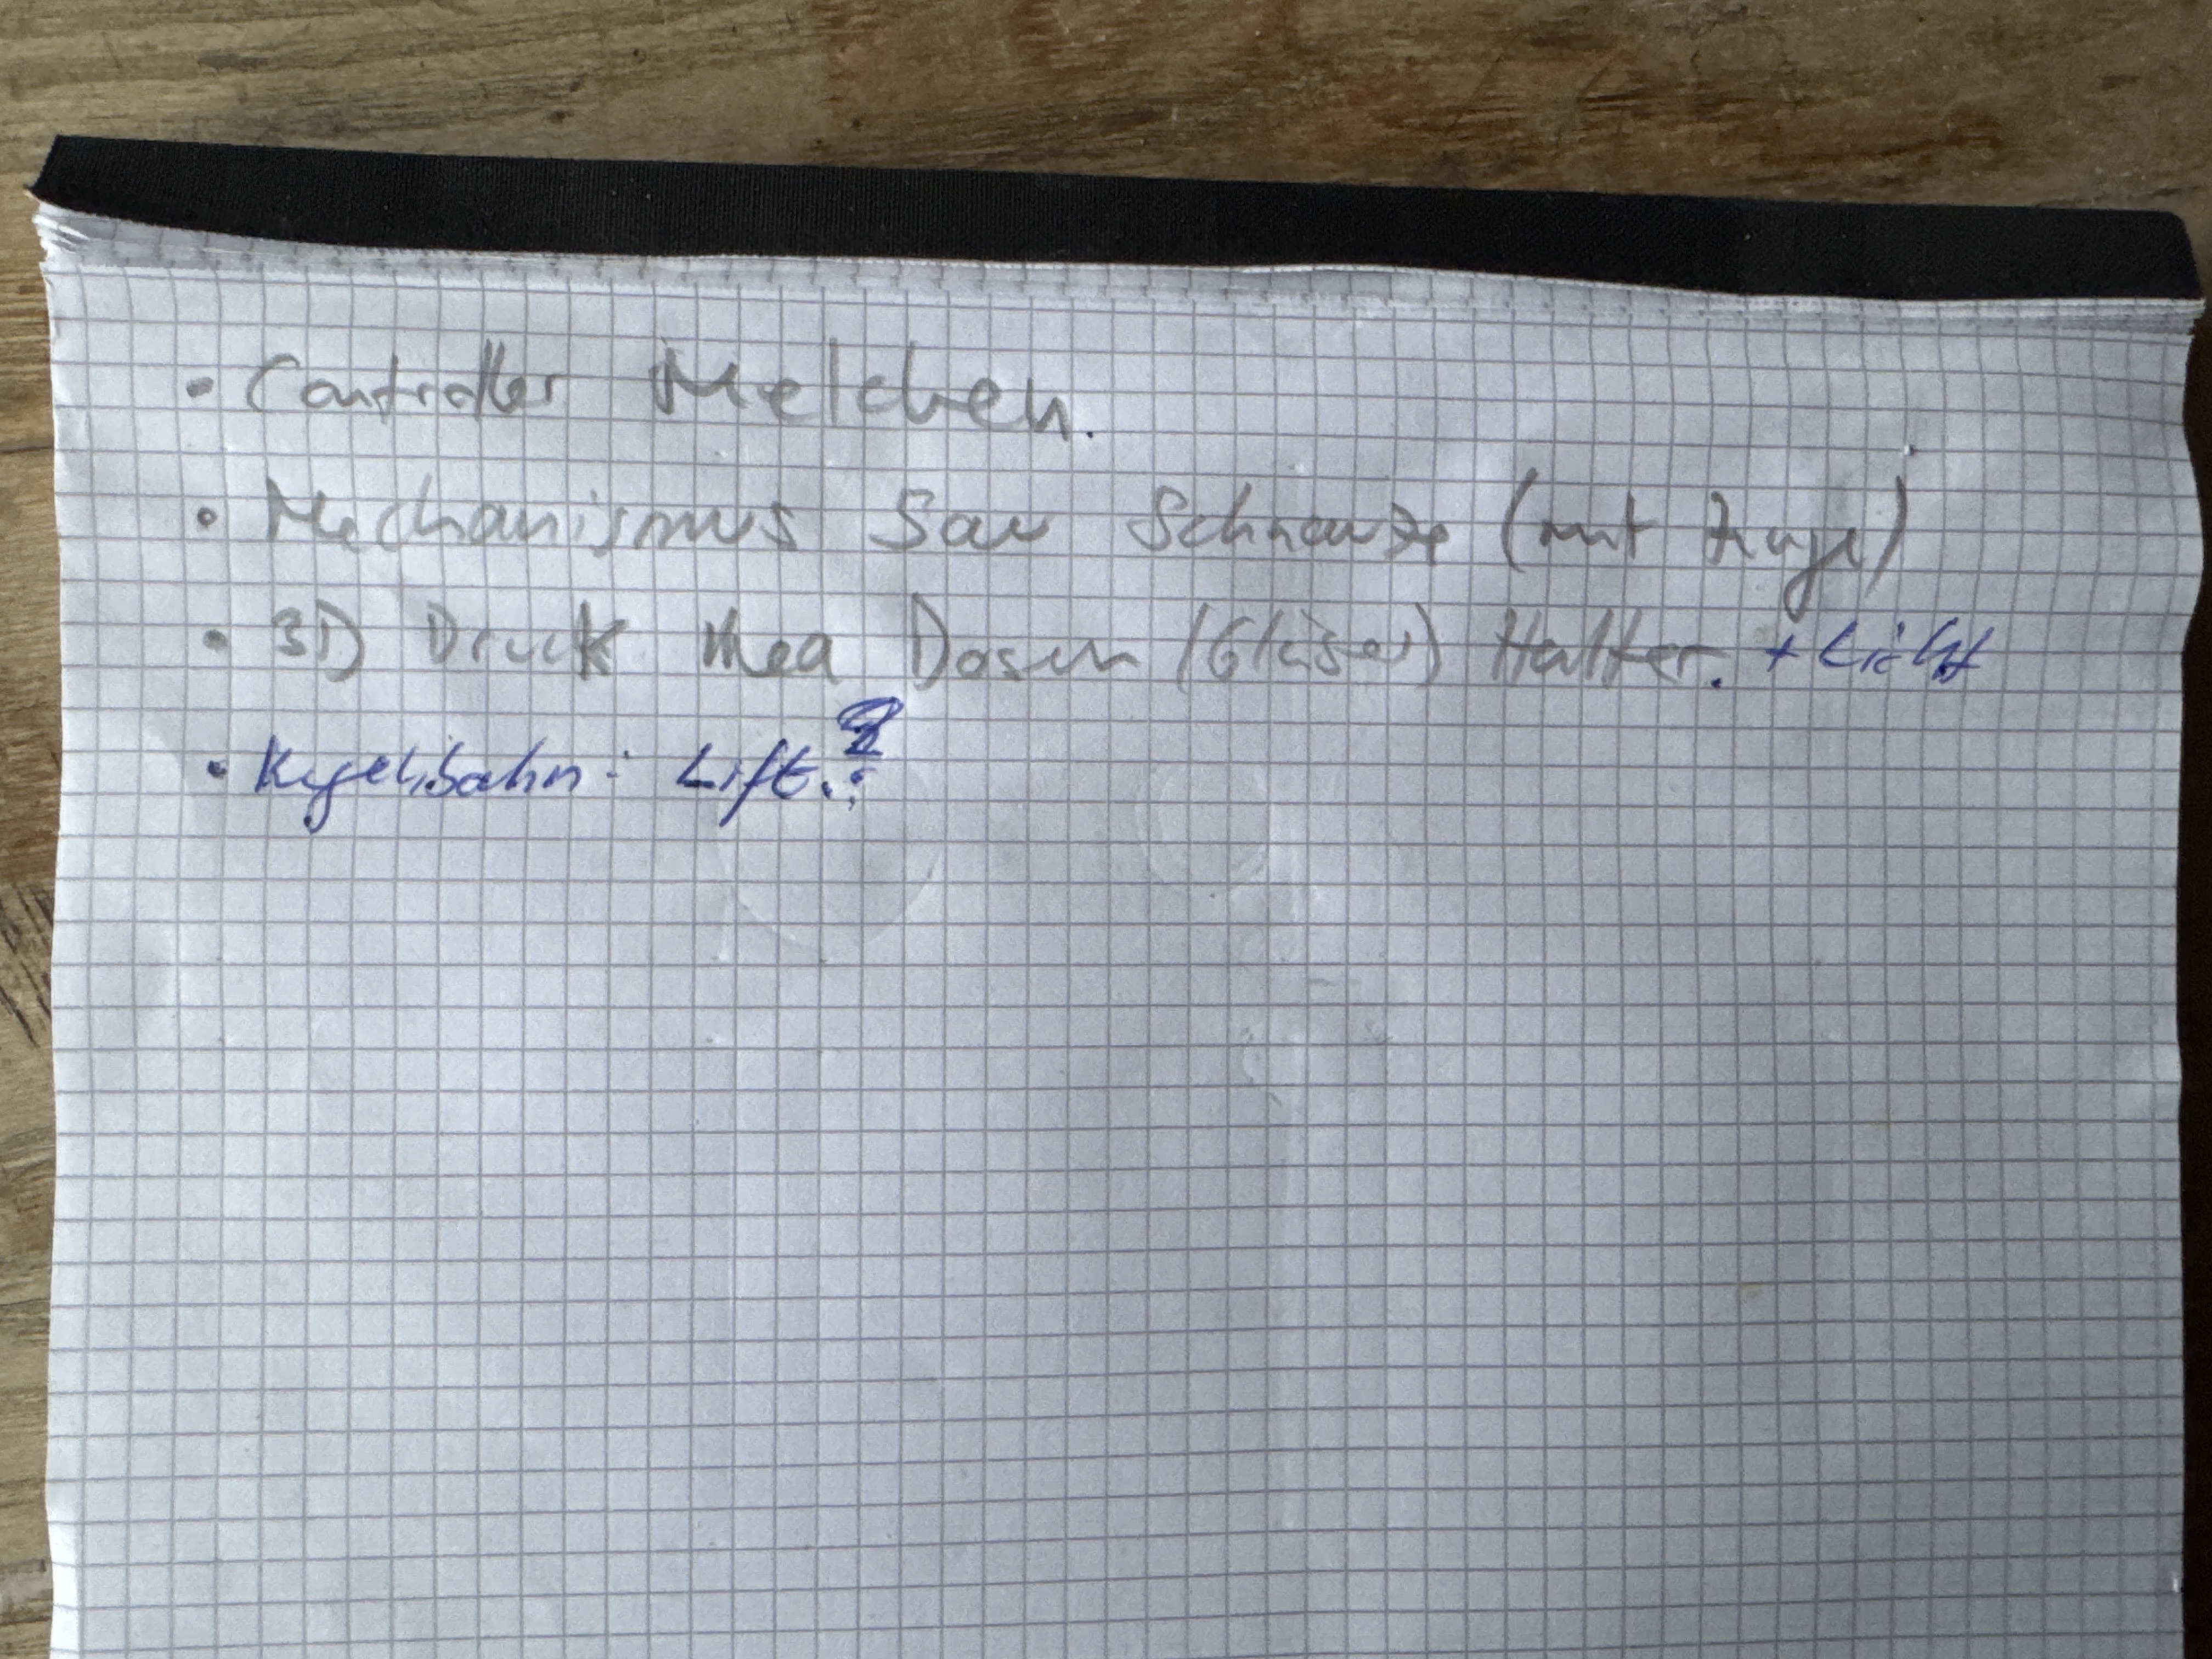 • Controller Melchen.
• Mechanismus Sau Schnauze (mit Zunge)
• 3D Druck Dosen (Gläser) Halter. + Licht
• Kugelibahn: Lift.?